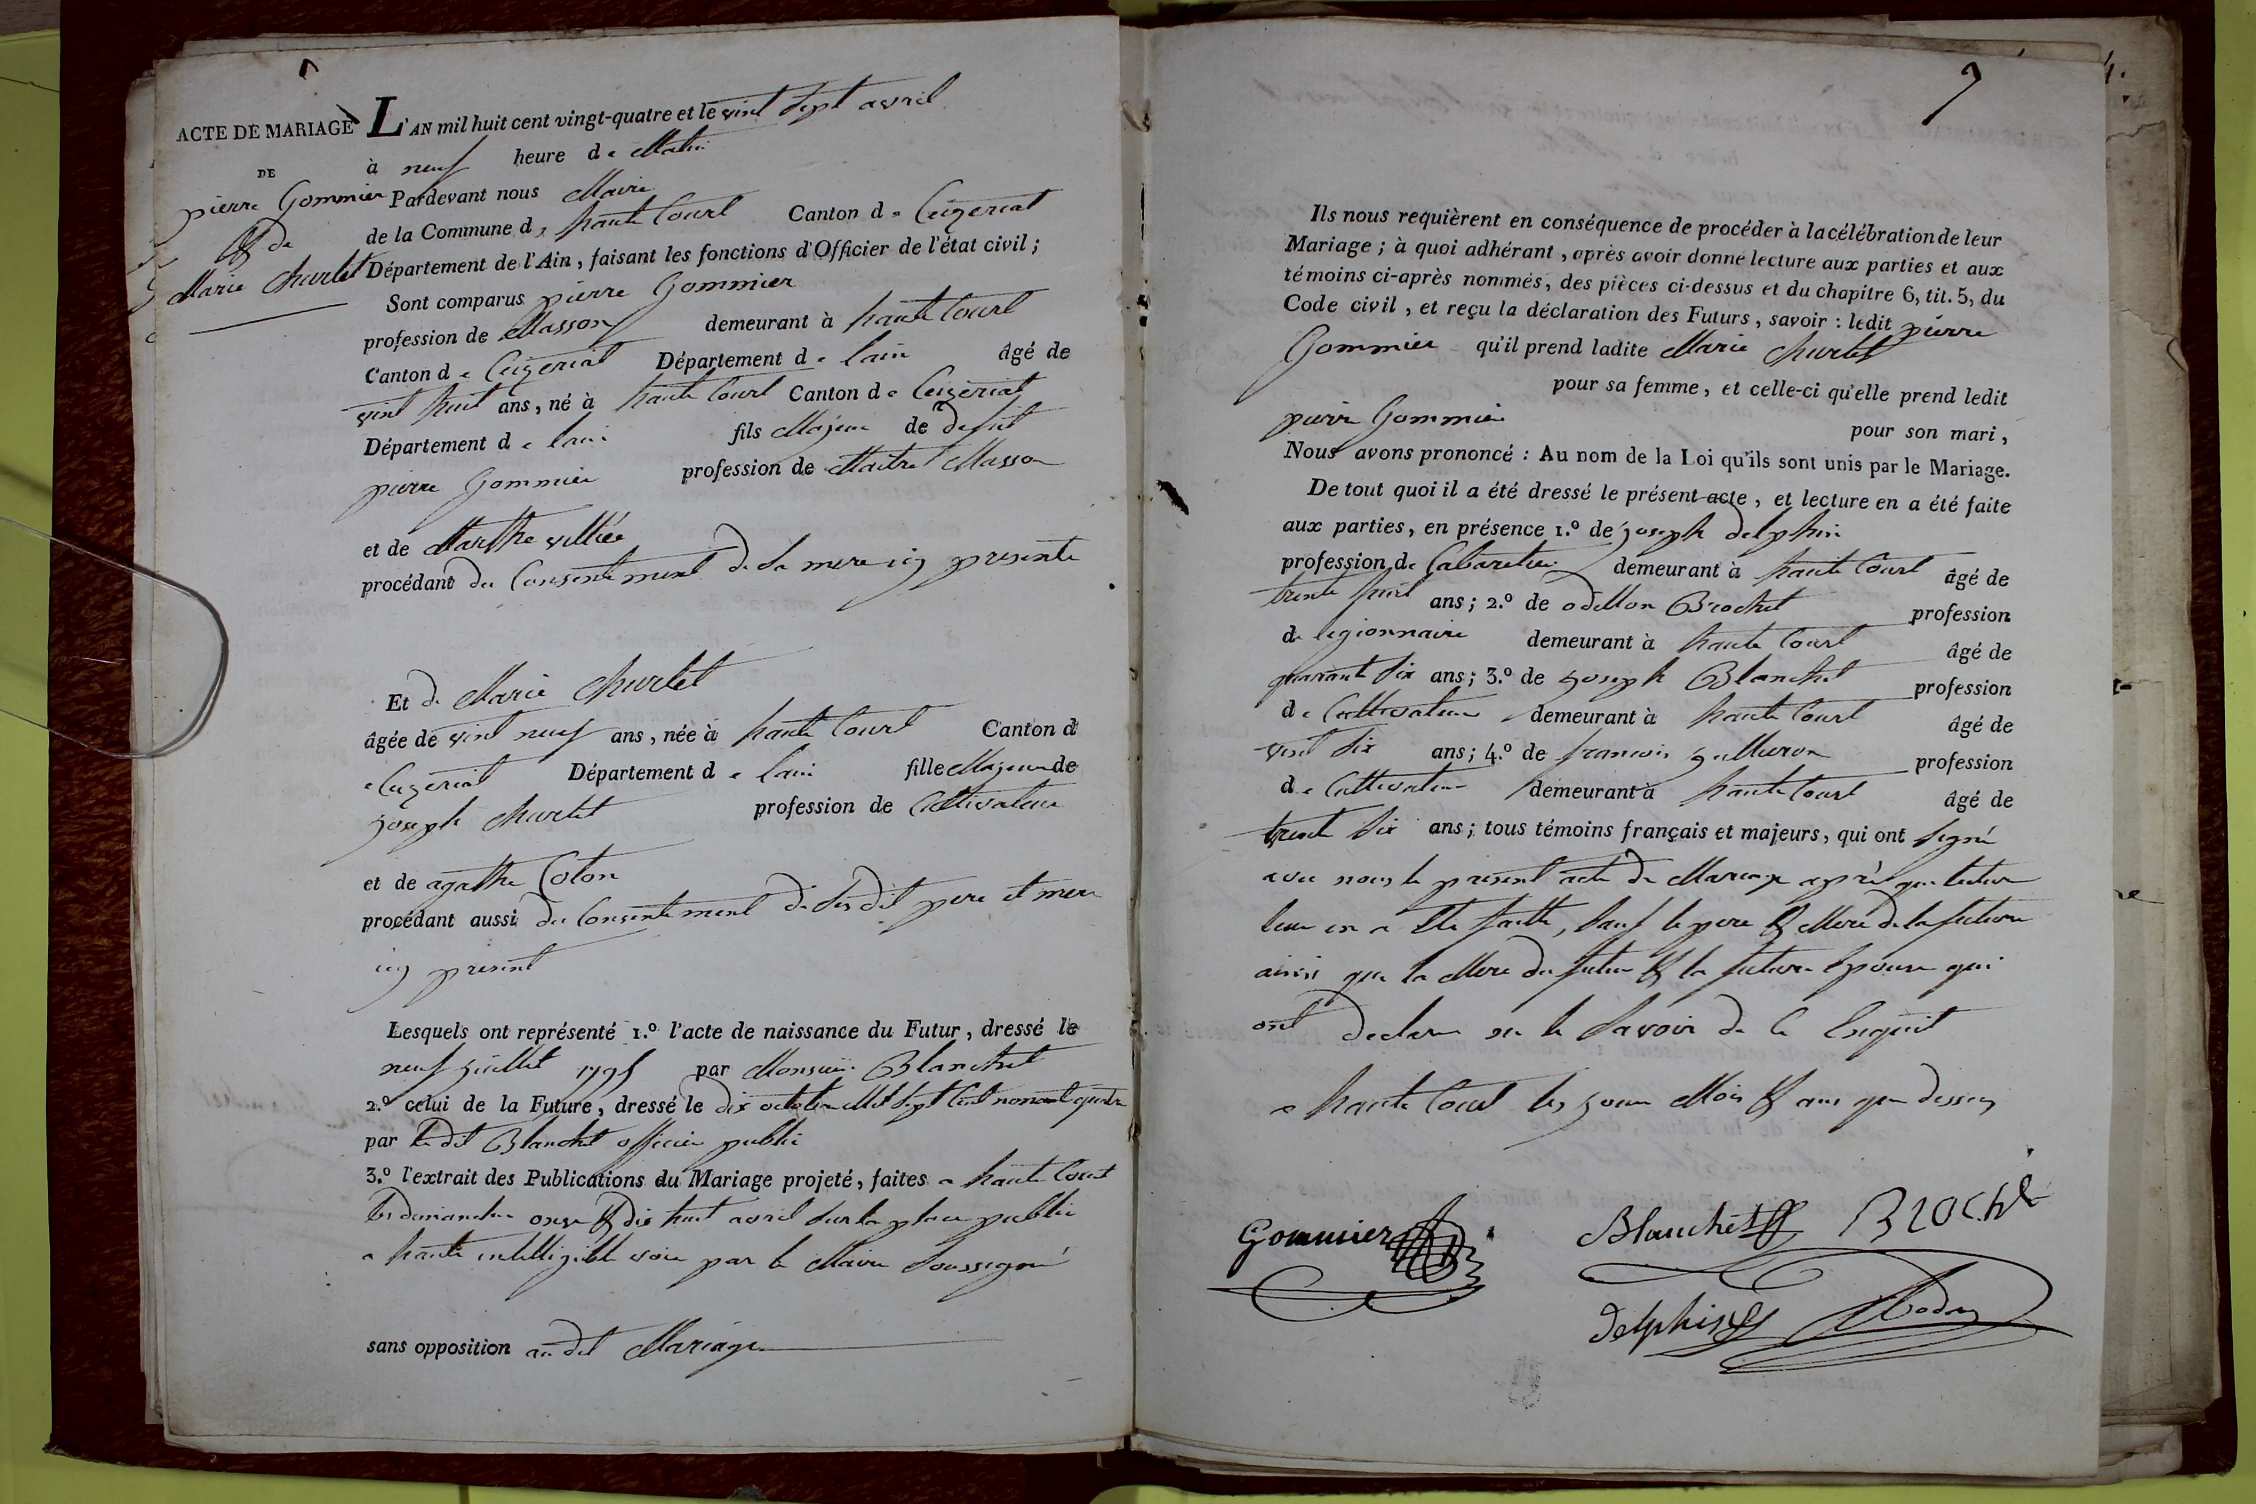 ACTE DE MARIAGE
DE
pierre Gommier
& de
Marie Churlet
L'AN mil huit cent vingt-quatre et le vint sept avril
à neuf heure de Matin
Pardevant nous Maire
de la Commune de haute Court Canton de Ceyzeriat
Département de l'Ain, faisant les fonctions d'Officier de l'état civil;
Sont comparus pierre Gommier
profession de Masson demeurant à haute Court
Canton de Ceyzeriat Département de lain âgé de
vint huit ans, né à haute Court Canton de Ceyzeriat
Département de lain fils Majeur de defunt
pierre Gommier profession de Maitre Masson
et de Marthe
procédant du Consentement de Sa mere icy presente
Et de Marie Churlet
âgée de vint neuf ans, née à haute Court Canton d
e Ceyzeriat Département de lain fille Majeure de
joseph Churlet profession de Cultivateur
et de agathe Coton
procédant aussi du Consentement de Ses dit pere et mere
icy present
Lesquels ont représenté 1.º l'acte de naissance du Futur, dressé le
neuf juillet 1795 par Monsieur Blanchet
2.º celui de la Future, dressé le dix octobre Mil Sept Cent nonante quatre
par le dit Blanchet officier public
3.º l'extrait des Publications du Mariage projeté, faites a haute Court
les dimanche onze & dix huit avril Sur la place public
a haute intelligible voix par le Maire Soussigné
sans opposition au dit Mariage
7
Ils nous requièrent en conséquence de procéder à la célébration de leur
Mariage; à quoi adhérant, après avoir donné lecture aux parties et aux
témoins ci-après nommés, des pièces ci-dessus et du chapitre 6, tit. 5, du
Code civil, et reçu la déclaration des Futurs, savoir: ledit pierre
Gommier qu'il prend ladite Marie Churlet
pour sa femme, et celle-ci qu'elle prend ledit
pierre Gommier pour son mari,
Nous avons prononcé: Au nom de la Loi qu'ils sont unis par le Mariage.
De tout quoi il a été dressé le présent acte, et lecture en a été faite
aux parties, en présence 1.º de joseph delphin
profession de Cabaretier demeurant à haute Court âgé de
trente huit ans; 2.º de odillon Brochet profession
de legionnaire demeurant à haute Court âgé de
quarante Six ans; 3.º de joseph Blanchet profession
de Cultivateur demeurant à haute Court âgé de
vint Six ans; 4.º de francois profession
de Cultivateur demeurant à haute Court âgé de
trente Six ans; tous témoins français et majeurs, qui ont Signé
avec nous le present acte de Mariage après que lecture
leur en a Eté faitte, Sauf le pere & Mere de la future
ainsi que la Mere du futur & la future Epouse qui
ont declare ne le Savoir de Ce Enquit
a haute Court les jour Mois & ans que dessus
Gommier Blanchet BROChé
delphin